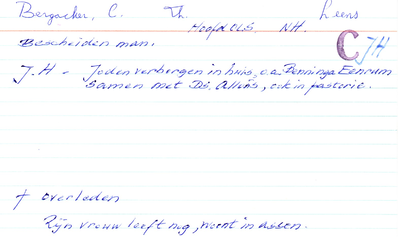 Bergacker, C. Th. Leens
Hoofd OLS. NH.
Bescheiden man.
C JH
J.H - Joden verborgen in huis, o.a. Benninga Eenrum
samen met Ds. Allers, ook in pastorie.
† overleden
Zijn vrouw leeft nog, woont in Assen.